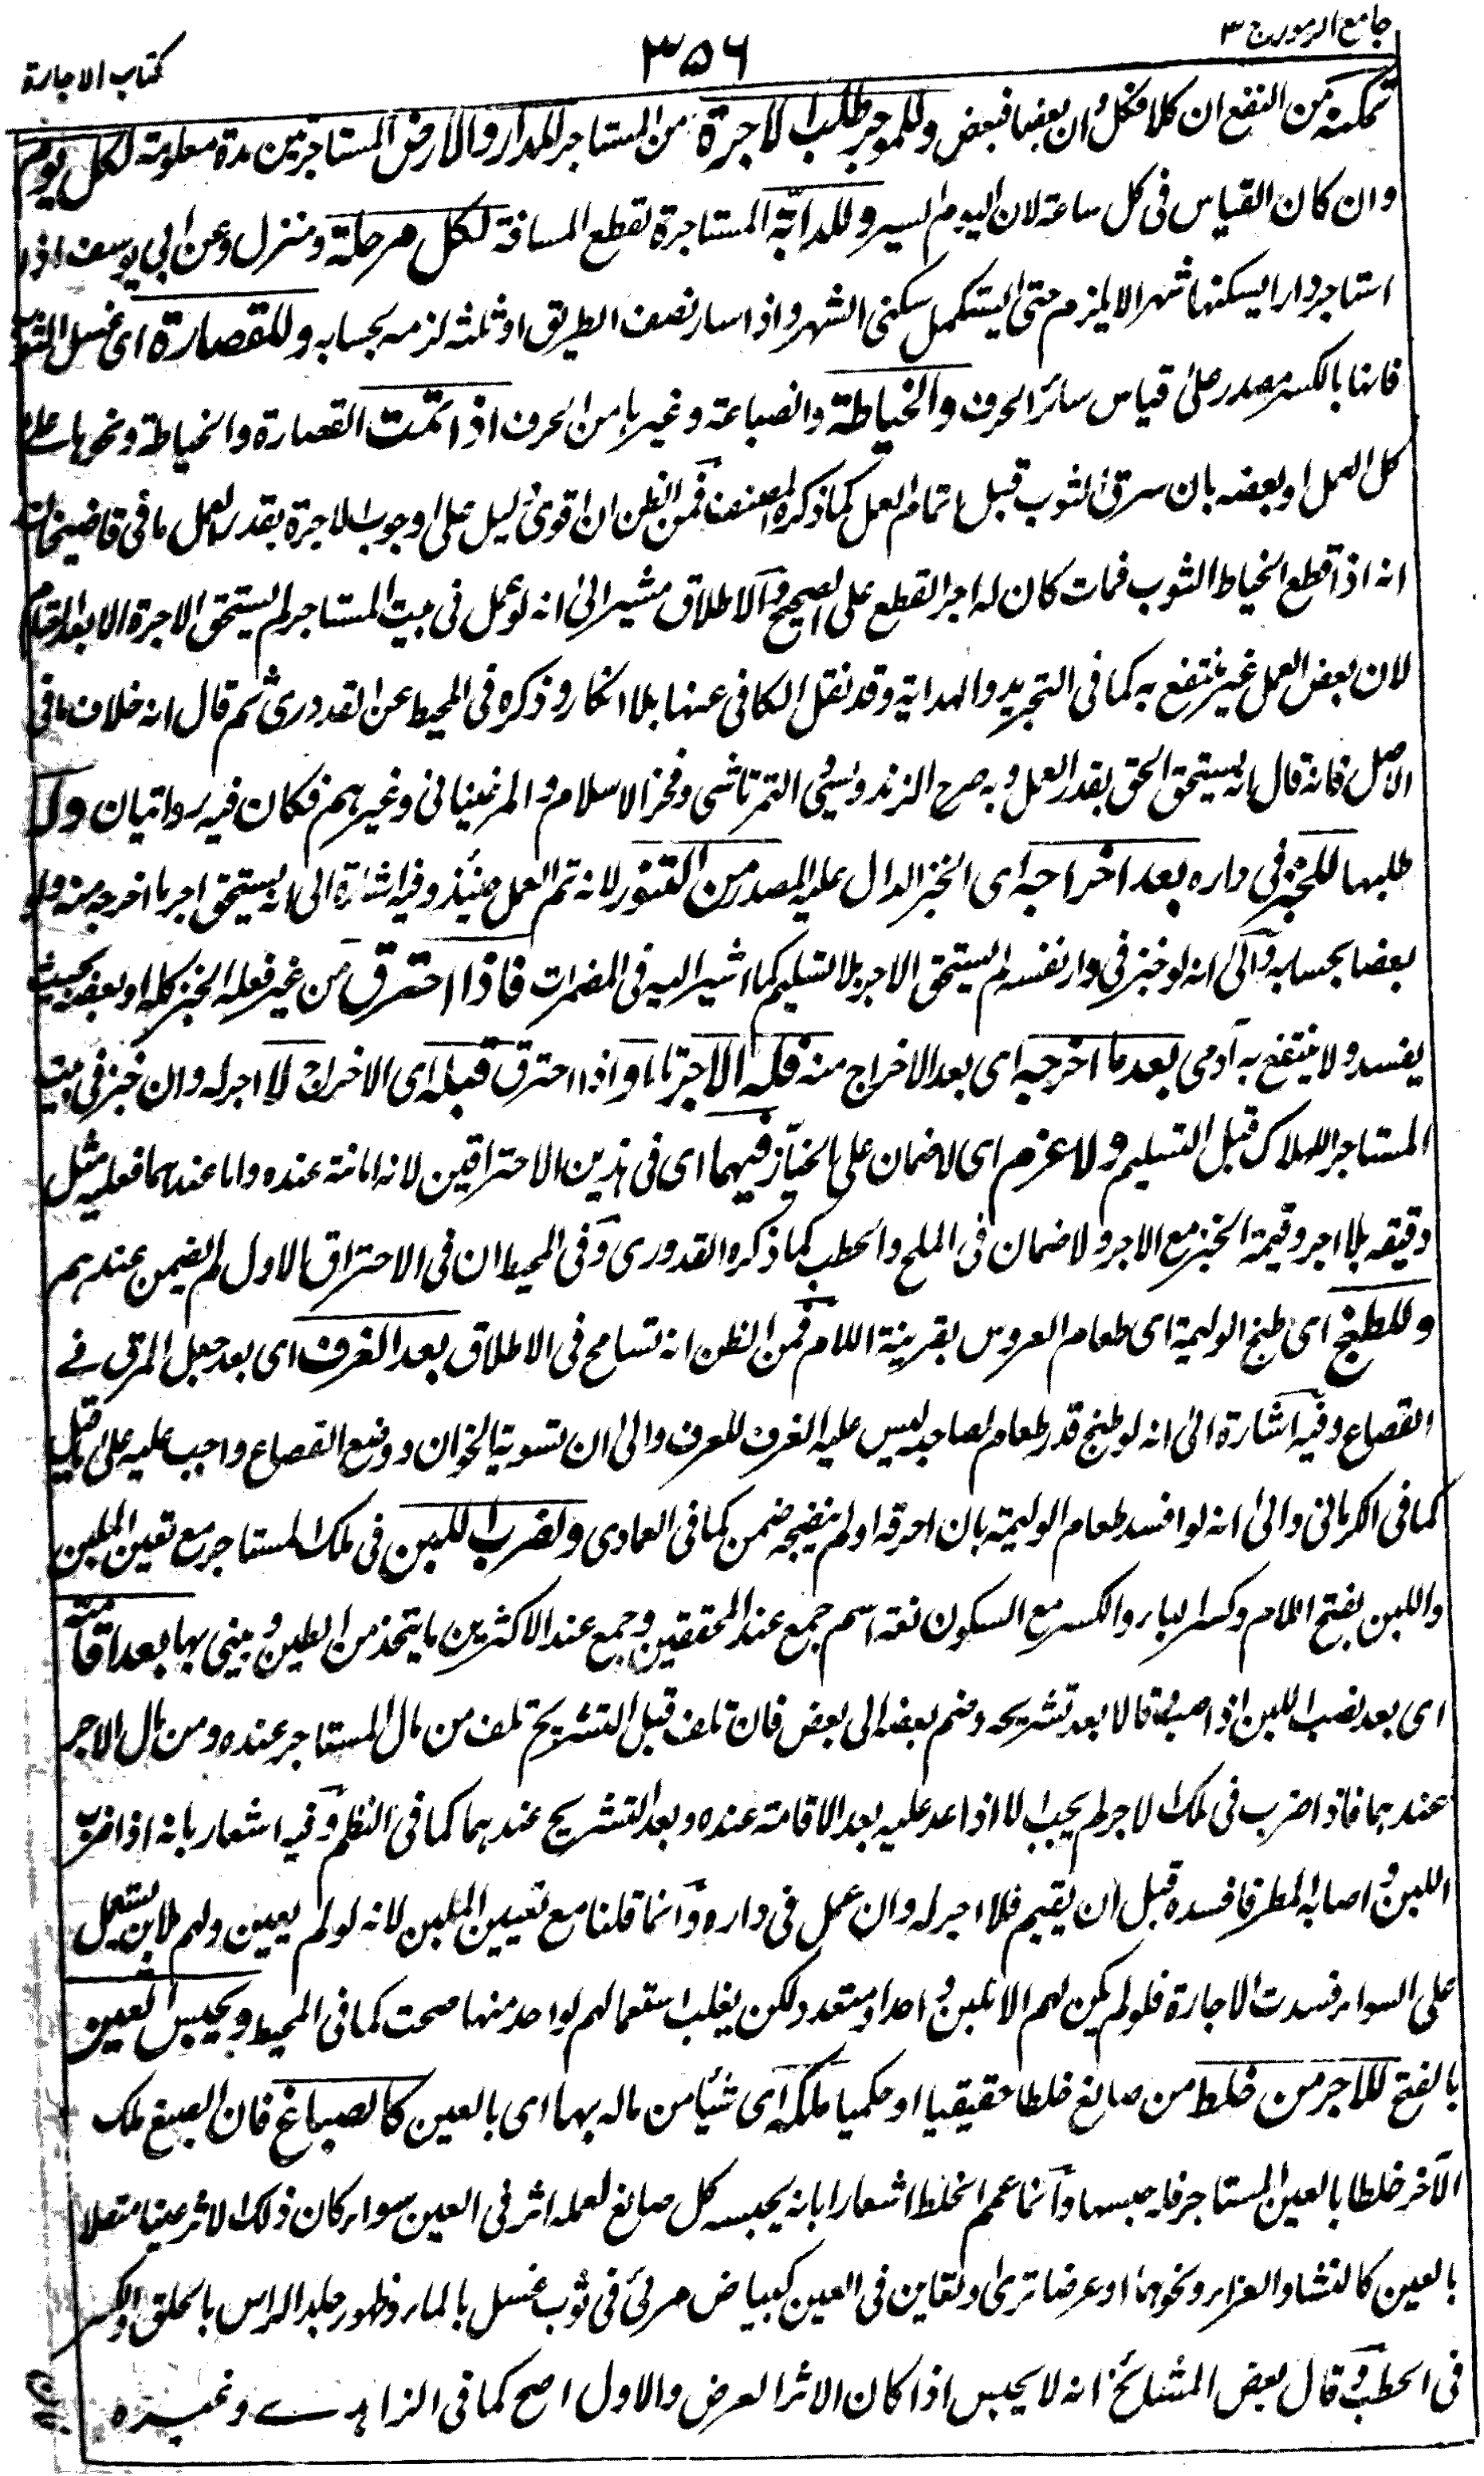 جامع الرموز ج ٣
٣٥٦
كتاب الاجارة
تمكنه من النفع ان كلا فكل وان بعضا فبعض وللموجر طلب الاجرة من المستاجر للدار والارض المستاجرتين مدة معلومة لكل يوم
وان كان القياس فى كل ساعة لان اليوم السير وللدابّة المستاجرة لقطع المسافة لكل مرحلة ومنزل وعن ابى يوسف اذا
استاجر دارا ليسكنها شهرا لا يلزم حتى ليستكمل سكنى الشهر واذا سار نصف الطريق او ثلثه لزمه بحسابه وللقصارة اى غسل الثوب
فانها بالكسر مصدر على قياس سائر الحرف والخياطة والصباغة وغيرها من الحرف اذا تمت القصارة والخياطة ونحوهما على
كل العمل او بعضه بان سرق الثوب قبل اتمام العمل كما ذكره المصنف فمن الظن ان اقوى دليل على وجوب الاجرة بقدر العمل ما فى قاضيخان
انه اذا قطع الخياط الثوب فمات كان له اجر القطع على الصحيح والاطلاق مشير الى انه لو عمل فى بيت المستاجر لم يستحق الاجرة الا بعد التمام
لان بعض العمل غير منتفع به كما فى التجريد والهداية وقد نقل الكافى عنها بلا انكار وذكره فى المحيط عن القدورى ثم قال انه خلاف ما فى
الاصل فانه قال انه يستحق الحق بقدر العمل وبه صرح الزندويستى والتمرتاشى وفخر الاسلام والمرغينانى وغيرهم فكان فيه روايتان وله
طلبها للخبز فى داره بعد اخراجه اى الخبز الدال عليه المصدر من التنور لانه تم العمل حينئذ وفيه اشارة الى انه يستحق اجر ما اخرجه منه ولو
بعضا بحسابه والى انه لو خبز فى دار نفسه لم يستحق الاجر بلا تسليم كما اشير اليه فى المضمرات فاذا احترق من غير فعله الخبز كله او بعضه بحيث
يفسد ولا ينتفع به آدمى بعد ما اخرجه اى بعد الاخراج منه فله الاجر تاما واذا احترق قبله اى الاخراج لا اجر له وان خبز فى بيت
المستاجر للهلاك قبل التسليم ولا غرم اى لا ضمان على الخباز فيهما اى فى هذين الاحتراقين لانه امانة عنده واما عندهما فعليه مثل
دقيقه بلا اجر وقيمة الخبز مع الاجر ولا ضمان فى الملح والحطب كما ذكره القدورى وفى المحيط ان فى الاحتراق الاول لم يضمن عندهم
وللطبخ اى طبخ الوليمة اى طعام العروس بقرينة اللام فمن الظن انه تسامح فى الاطلاق بعد الغرف اى بعد جعل المرق فى
القصاع وفيه اشارة الى انه لو طبخ قدر طعام لصاحبه ليس عليه الغرف للعرف والى ان تسوية الخوان ووضع القصاع واجب عليه على ما قيل
كما فى الكرمانى والى انه لو افسد طعام الوليمة بان احرقه او لم ينضجه ضمن كما فى العمادى ولضرب اللبن فى ملك المستاجر مع تعين الملبن
واللبن بفتح اللام وكسر الباء والكسر مع السكون لغة اسم جمع عند المحققين وجمع عند الاكثرين ما يتخذ من الطين ويبنى بها بعد اقامته
اى بعد نصب اللبن اذا صب وقالا بعد تشريحه وضم بعضه الى بعض فان تلف قبل التشريح تلف من مال المستاجر عنده ومن مال الاجر
عندهما فاذا ضرب فى ملك الاجر لم يجب الا اذا عد عليه بعد الاقامة عنده وبعد التشريح عندهما كما فى النظم وفيه اشعار بانه اذا ضرب
اللبن واصابه المطر فافسده قبل ان يقيم فلا اجر له وان عمل فى داره وانما قلنا مع تعيين الملبن لانه لو لم يعين ولهم ملابن يستعمل
على السواء فسدت الاجارة فلو لم يكن لهم الا ملبن واحد او متعدد لكن يغلب استعمالهم لواحد منها صحت كما فى المحيط ويحبس العين
بالفتح للاجر من خلط من صانغ خلطا حقيقيا او حكميا ملكه اى شيئا من ماله بهما اى بالعين كالصباغ فان الصبغ ملك
الآخر خلطا بالعين المستاجر فله حبسها وانما عمم الخلط اشعارا بانه يحبسه كل صانع لعمله اثر فى العين سواء كان ذلك الاثر عينا متصلا
بالعين كالنشا والغراء ونحوهما او عرضا ترى وتعاين فى العين كبياض مرئى فى ثوب غسل بالماء وظهور جلد الراس بالحلق والكسر
فى الحطب وقال بعض المشائخ انه لا يحبس اذا كان الاثر العرض والاول اصح كما فى الزاهدى وغيره